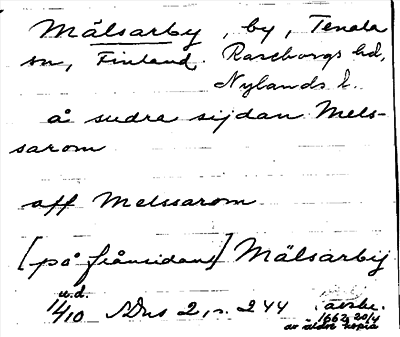 Mälsarby, by, Tenala
sn, Finland. Raseborgs hd,
Nylands l.
å sudre sijdan Mels-
sarom
aff Melssarom
[på främsidan] Mälsarbÿ
u.d.
11/10 SDns 2, s. 244 avskr.
1662 20/4
av äldre kopia